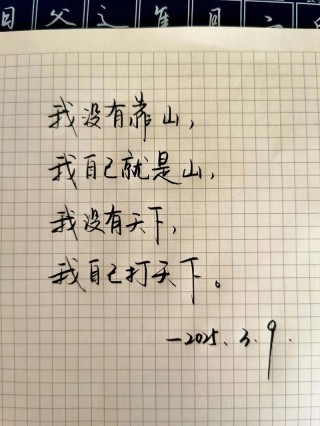 我没有靠山，
我自己就是山，
我没有天下，
我自己打天下。
—2025.3.9.